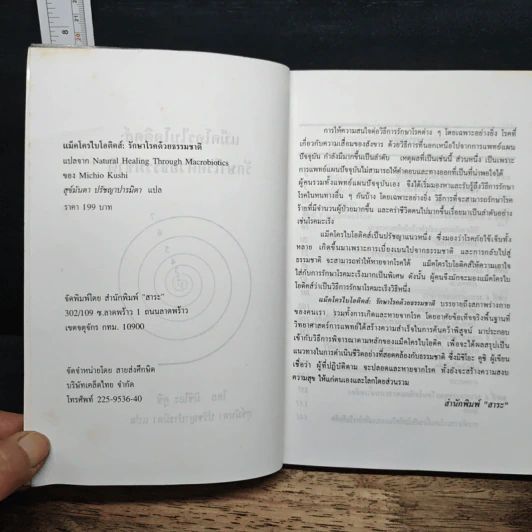 แม็คโครไบโอติคส์: รักษาโรคด้วยธรรมชาติ
แปลจาก Natural Healing Through Macrobiotics
ของ Michio Kushi
สุขุมันดา ปรัชญาปารมิตา แปล
ราคา 199 บาท
จัดพิมพ์โดย สำนักพิมพ์ "สาระ"
302/109 ซ.ลาดพร้าว 1 ถนนลาดพร้าว
เขตจตุจักร กทม. 10900
จัดจำหน่ายโดย สายส่งศึกษิต
บริษัทเคล็ดไทย จำกัด
โทรศัพท์ 225-9536-40
การให้ความสนใจต่อวิธีการรักษาโรคต่าง ๆ โดยเฉพาะอย่างยิ่ง โรคที่
เกี่ยวกับความเสื่อมของสังขาร ด้วยวิธีการที่นอกเหนือไปจากการแพทย์แผน
ปัจจุบัน กำลังมีมากขึ้นเป็นลำดับ เหตุผลที่เป็นเช่นนี้ ส่วนหนึ่ง เป็นเพราะ
การแพทย์แผนปัจจุบันไม่สามารถให้คำตอบและทางออกที่เป็นที่น่าพอใจได้
ผู้คนรวมทั้งแพทย์แผนปัจจุบันเอง จึงได้เริ่มมองหาและรับรู้ถึงวิธีการรักษา
โรคในหนทางอื่น ๆ กันบ้าง โดยเฉพาะอย่างยิ่ง วิธีการที่จะสามารถรักษาโรค
ร้ายที่มีจำนวนผู้ป่วยมากขึ้น และคร่าชีวิตคนไปมากขึ้นเรื่อยมาเป็นลำดับอย่าง
เช่นโรคมะเร็ง
แม็คโครไบโอติคส์เป็นปรัชญาแนวหนึ่ง ซึ่งมองว่าโรคภัยไข้เจ็บทั้ง
หลาย เกิดขึ้นมาเพราะการเบี่ยงเบนไปจากธรรมชาติ และการกลับไปสู่
ธรรมชาติ จะสามารถทำให้หายจากโรคได้ แม็คโครไบโอติคส์ให้ความเอาใจ
ใส่กับการรักษาโรคมะเร็งมากเป็นพิเศษ ดังนั้น ผู้คนจึงมักจะมองแม็คโครไบ
โอติคส์ว่าเป็นวิธีการรักษาโรคมะเร็งวิธีหนึ่ง
แม็คโครไบโอติคส์: รักษาโรคด้วยธรรมชาติ บรรยายถึงสภาพร่างกาย
ของคนเรา รวมทั้งการเกิดและหายจากโรค โดยอาศัยข้อเท็จจริงพื้นฐานที่
วิทยาศาสตร์การแพทย์ได้สร้างความสำเร็จในการค้นคว้าพิสูจน์ มาประกอบ
เข้ากับวิธีการพิจารณาตามหลักของแม็คโครไบโอติค เพื่อจะได้ผลสรุปเป็น
แนวทางในการดำเนินชีวิตอย่างที่สอดคล้องกับธรรมชาติ ซึ่งมิชิโอะ คูชิ ผู้เขียน
เชื่อว่า ผู้ที่ปฏิบัติตาม จะปลอดและหายจากโรค ทั้งยังจะสร้างความสงบ
ความสุข ให้แก่ตนเองและโลกโดยส่วนรวม
สำนักพิมพ์ "สาระ"